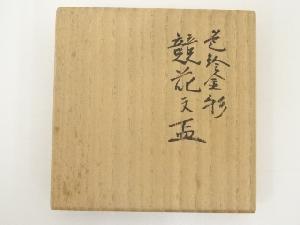 色絵金彩
競花文盃